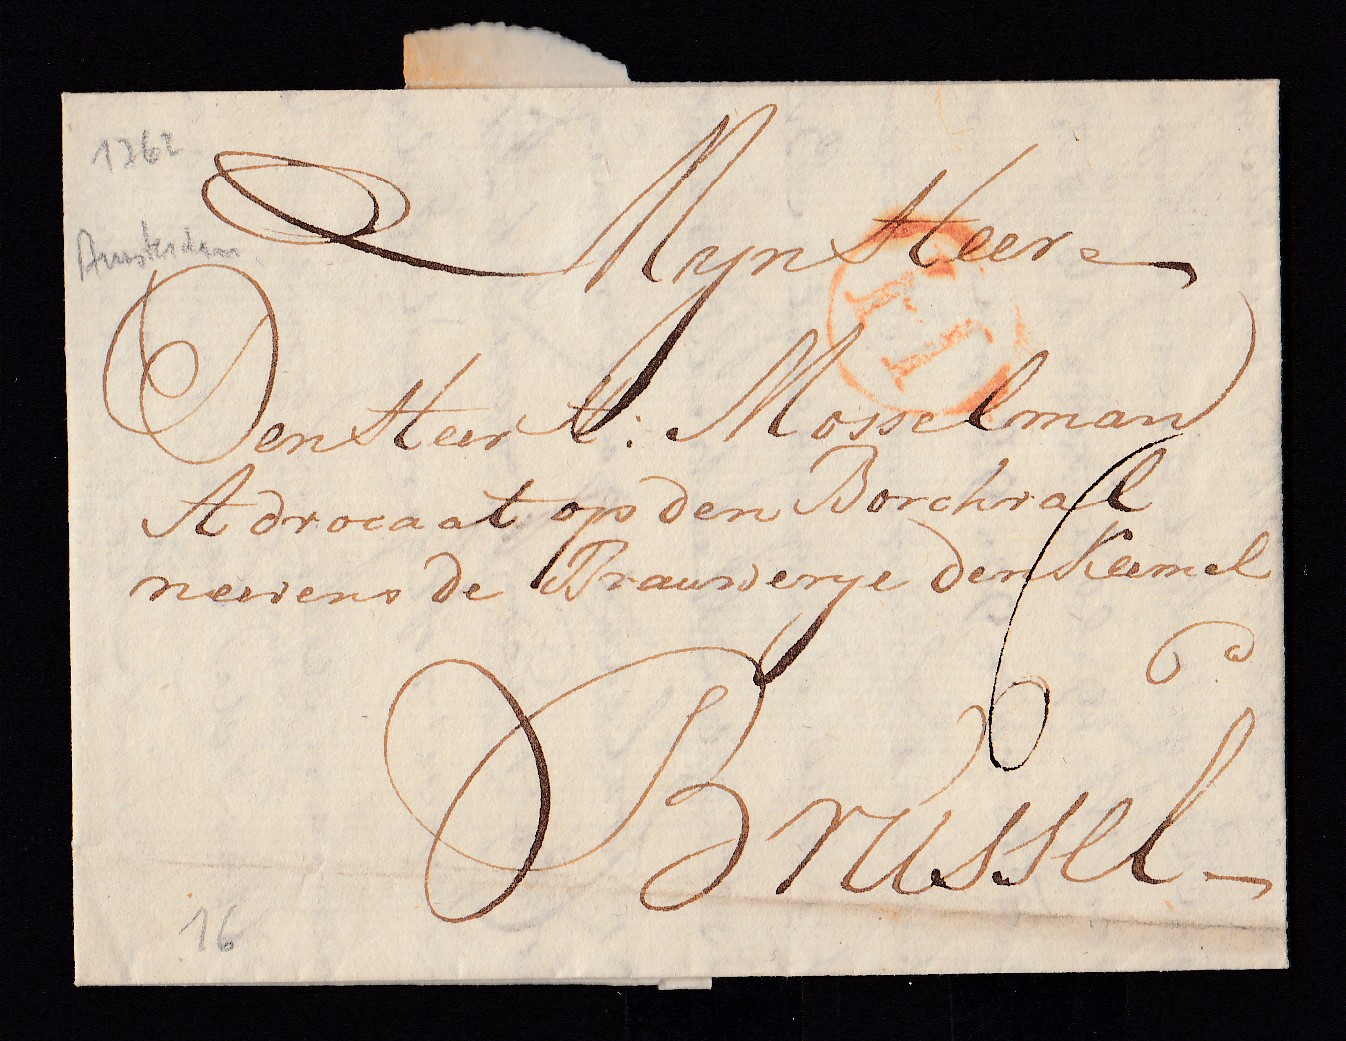 1762
Amsterdam
Mijn Heere
Den Heer H: Mosselman
Advocaat op den Borchval
nevens de Brauwerije den Keemel
6
Brussel
16